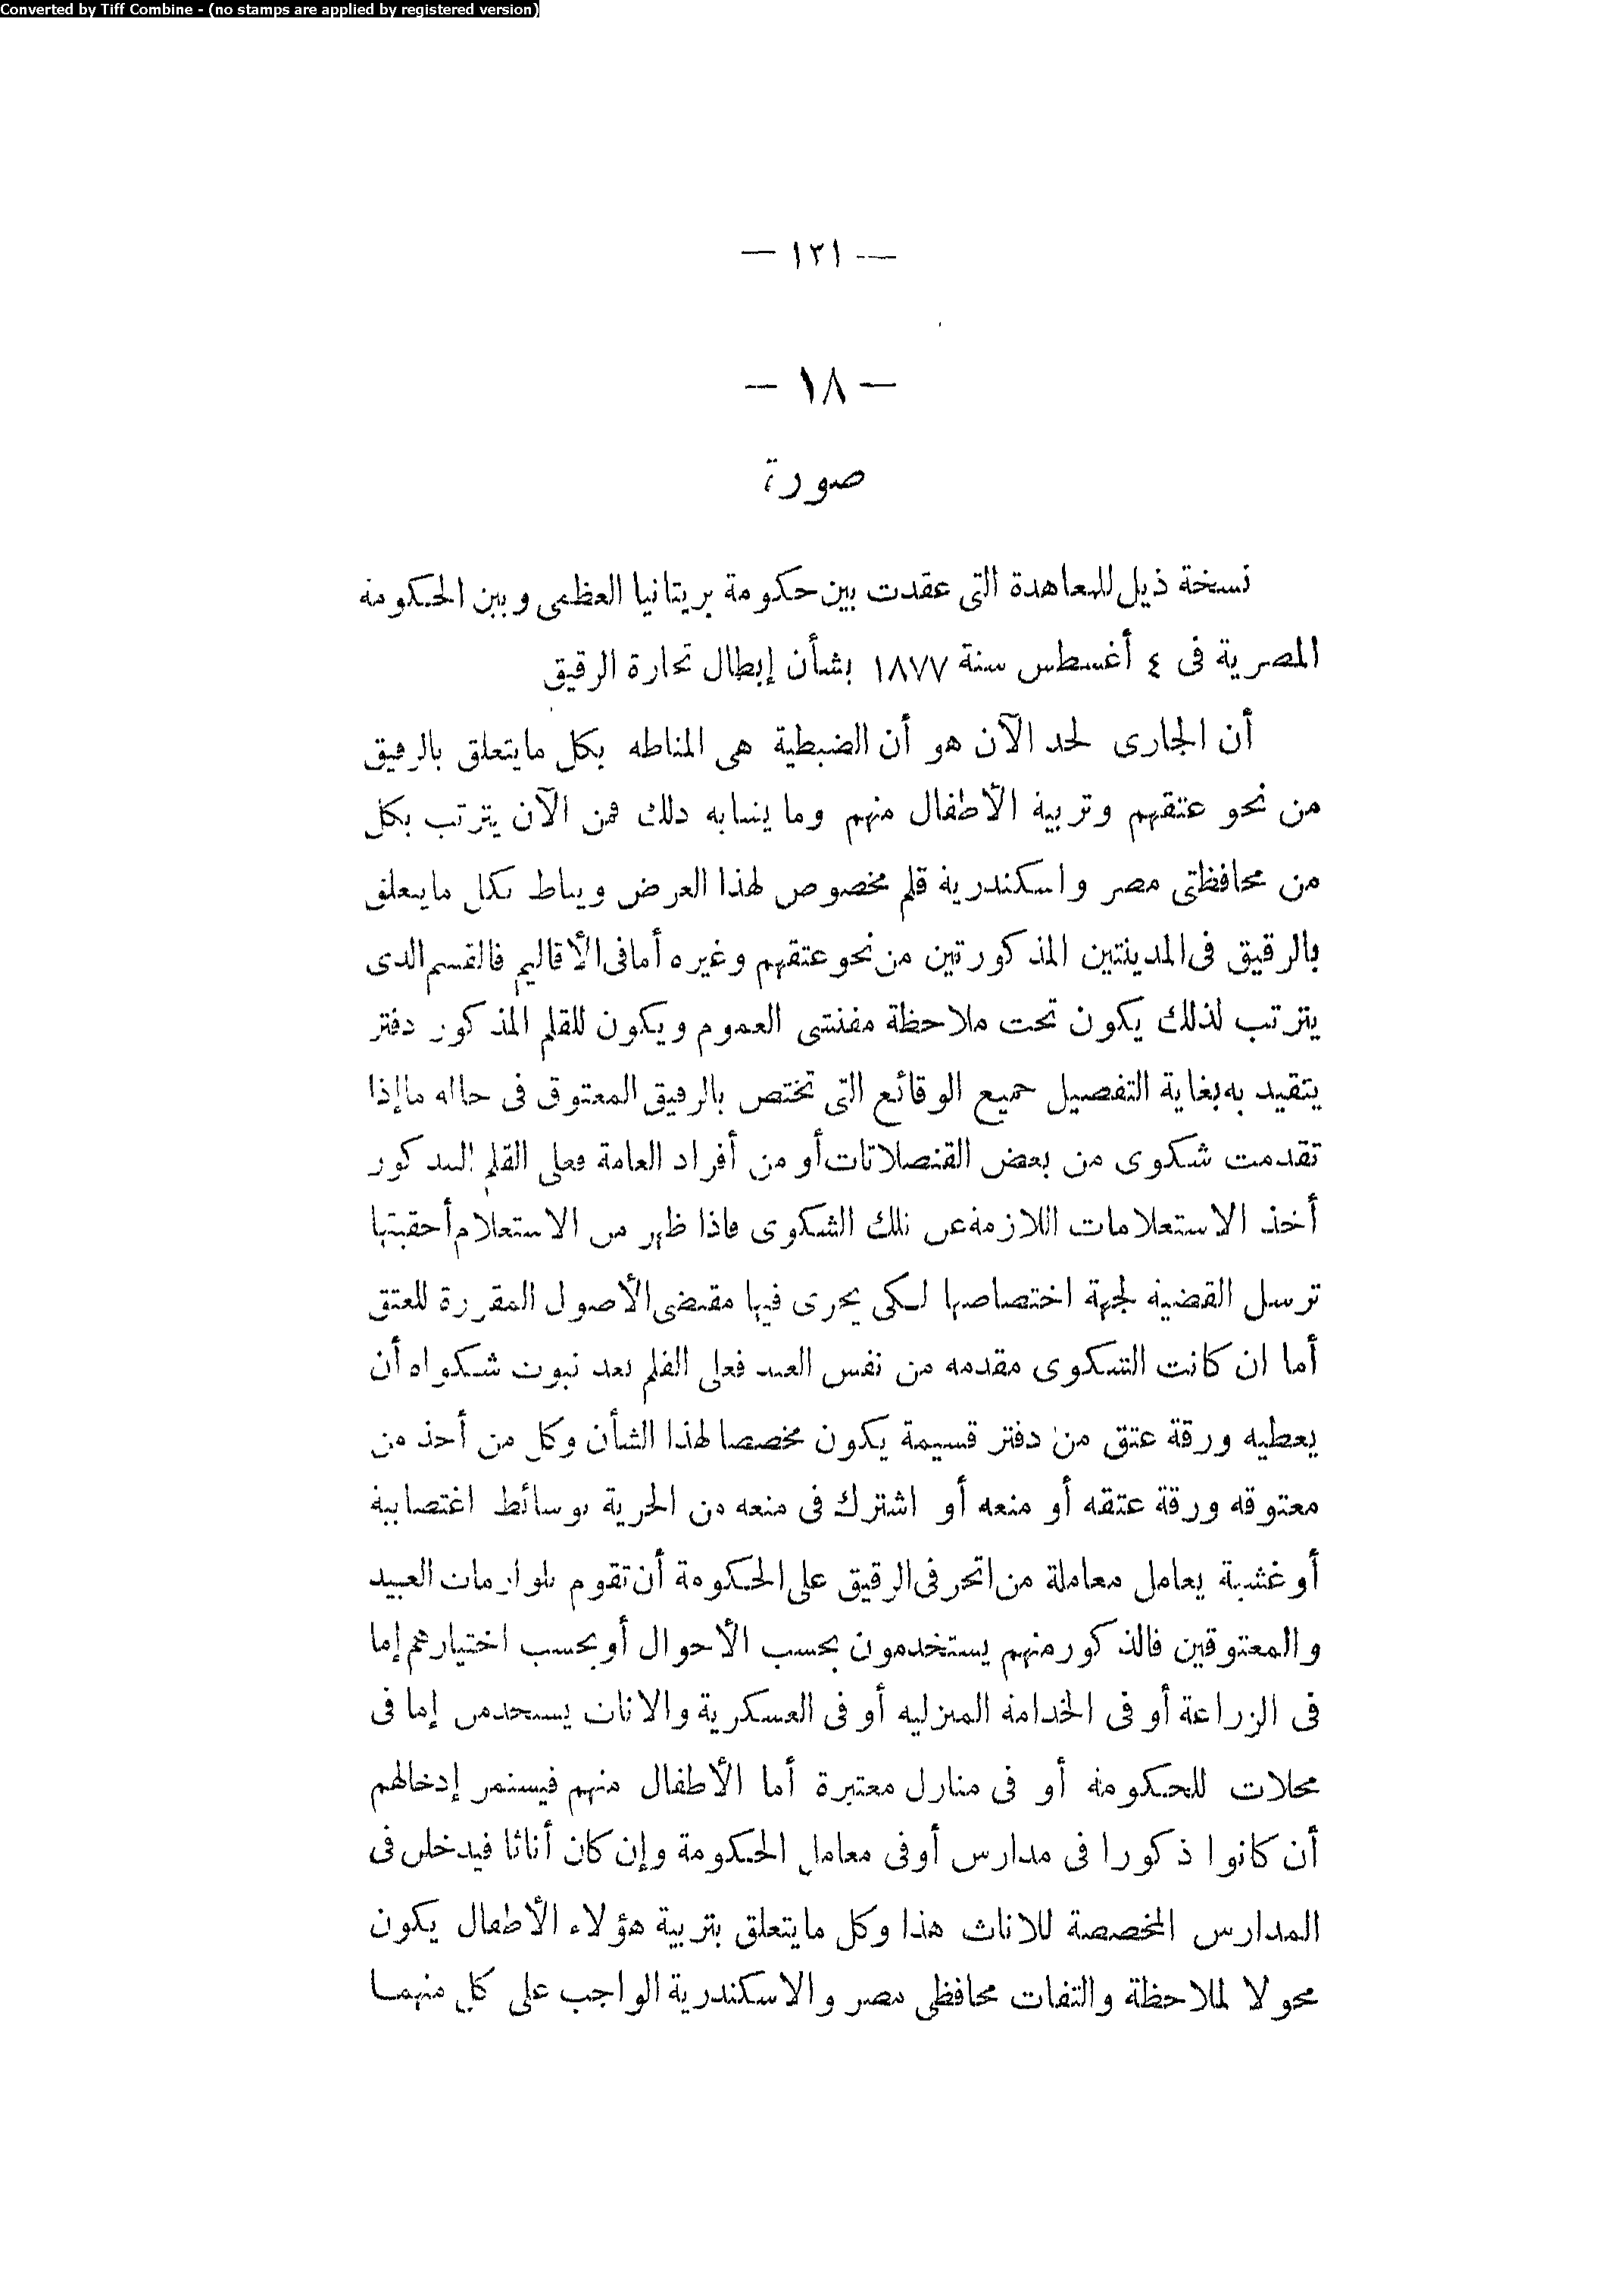 Converted by Tiff Combine - (no stamps are applied by registered version)
— ١٢١ —
— ١٨ —
صورة
نسخة ذيل للمعاهدة التى عقدت بين حكومة بريتانيا العظمى وبين الحكومة
المصرية فى ٤ أغسطس سنة ١٨٧٧ بشأن إبطال تجارة الرقيق
أن الجارى لحد الآن هو أن الضبطية هى المناطه بكل مايتعلق بالرقيق
من نحو عتقهم وتربية الأطفال منهم وما يشابه ذلك فمن الآن يترتب بكل
من محافظتى مصر واسكندرية قلم مخصوص لهذا الغرض ويناط بكل مايتعلق
بالرقيق فى المدينتين المذكورتين من نحو عتقهم وغيره أما فى الأقاليم فالقسم الذى
يترتب لذلك يكون تحت ملاحظة مفتشى العموم ويكون للقلم المذكور دفتر
يتقيد به بغاية التفصيل جميع الوقائع التى تختص بالرقيق المعتوق فى حاله ما إذا
تقدمت شكوى من بعض القنصلاتات أو من أفراد العامة فعلى القلم المذكور
أخذ الاستعلامات اللازمة عن تلك الشكوى فاذا ظهر من الاستعلام أحقيتها
ترسل القضية لجهة اختصاصها لكى يجرى فيها مقتضى الأصول المقررة للعتق
أما ان كانت الشكوى مقدمه من نفس العبد فعلى القلم بعد ثبوت شكواه أن
يعطيه ورقة عتق من دفتر قسيمة يكون مخصصا لهذا الشأن وكل من أخذ من
معتوقه ورقة عتقه أو منعه أو اشترك فى منعه من الحرية بوسائط اغتصابية
أو غشية يعامل معاملة من اتجر فى الرقيق على الحكومة أن تقوم بلوازمات العبيد
والمعتوقين فالذكور منهم يستخدمون بحسب الأحوال أو بحسب اختيارهم إما
فى الزراعة أو فى الخدامة المنزليه أو فى العسكرية والاناث يستخدمن إما فى
محلات للحكومة أو فى منازل معتبرة أما الأطفال منهم فيستمر إدخالهم
أن كانوا ذكورا فى مدارس أو فى معامل الحكومة وإن كان أناثا فيدخلن فى
المدارس المخصصة للاناث هذا وكل مايتعلق بتربية هؤلاء الأطفال يكون
محولا لملاحظة والتفات محافظى مصر والاسكندرية الواجب على كل منهما